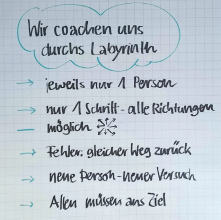 Wir coachen uns
durchs Labyrinth
→ jeweils nur 1 Person
→ nur 1 Schritt - alle Richtungen
— möglich
→ Fehler: gleicher Weg zurück
→ neue Person - neuer Versuch
→ Allen müssen ans Ziel